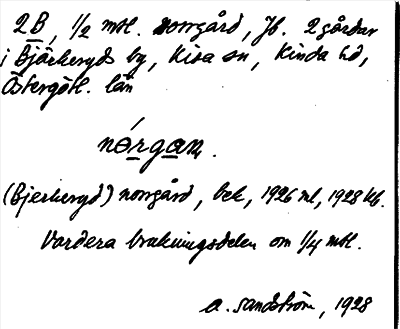 2B, 1/2 mtl. norrgård, Jb. 2 gårdar
i Björkeryds by, Kisa sn, Kinda hd,
Östergötl. län
nórgan.
(Bjerkeryd) norrgård, bek, 1926 ml, 1928 kb.
Vardera brukningsdelen om 1/4 mtl.
A. Sandström, 1928